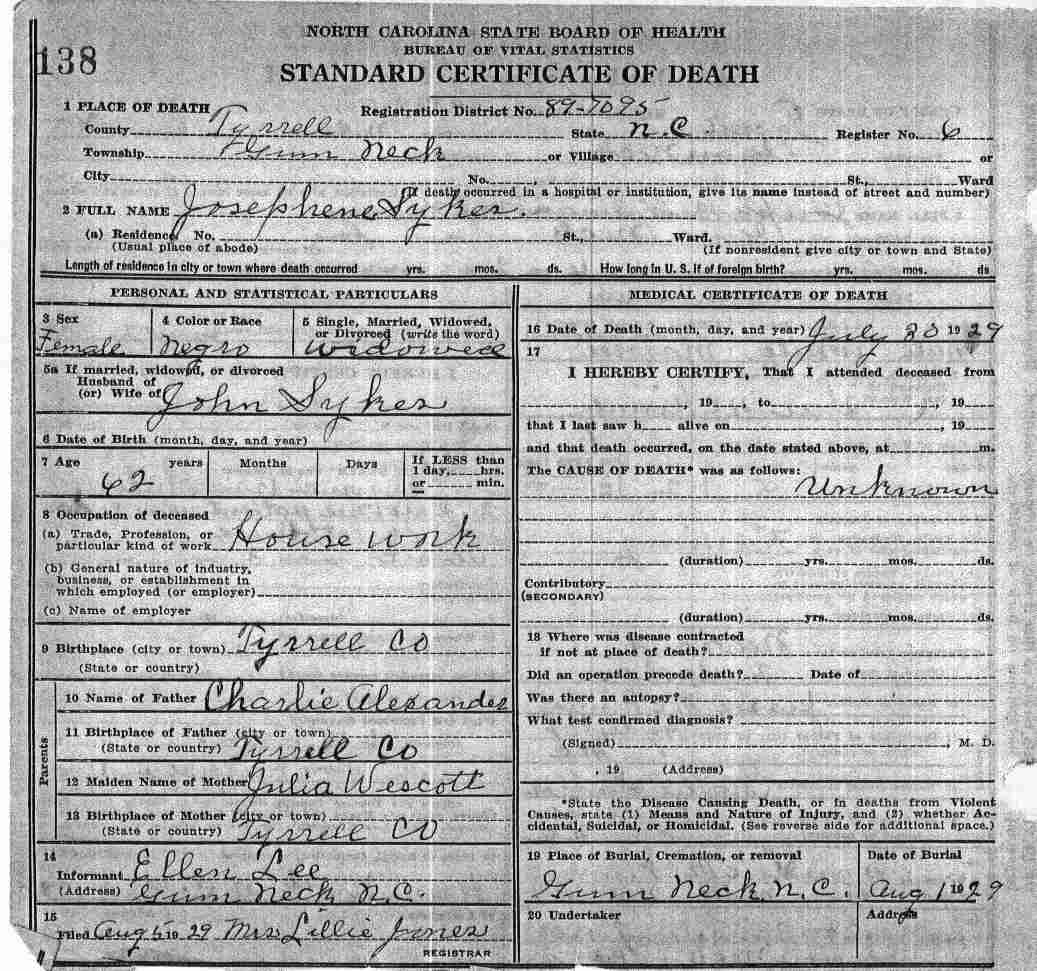 138
NORTH CAROLINA STATE BOARD OF HEALTH
BUREAU OF VITAL STATISTICS
STANDARD CERTIFICATE OF DEATH
1 PLACE OF DEATH Registration District No. 89-7095
County Tyrrell State N.C. Register No. 6
Township Gum Neck or Village or
City No. , St., Ward
(If death occurred in a hospital or institution, give its name instead of street and number)
2 FULL NAME Josephene Sykes.
(a) Residence, No. St., Ward.
(Usual place of abode) (If nonresident give city or town and State)
Length of residence in city or town where death occurred yrs. mos. ds. How long in U. S. if of foreign birth? yrs. mos. ds
PERSONAL AND STATISTICAL PARTICULARS
3 Sex 4 Color or Race 5 Single, Married, Widowed,
or Divorced (write the word)
Female Negro Widowed
5a If married, widowed, or divorced
Husband of
(or) Wife of John Sykes
6 Date of Birth (month, day, and year)
7 Age years Months Days If LESS than
1 day, hrs.
or min.
62
8 Occupation of deceased
(a) Trade, Profession, or
particular kind of work House work
(b) General nature of Industry,
business, or establishment in
which employed (or employer)
(c) Name of employer
9 Birthplace (city or town) Tyrrell Co
(State or country)
Parents
10 Name of Father Charlie Alexander
11 Birthplace of Father (city or town)
(State or country) Tyrrell Co
12 Maiden Name of Mother Julia Wescott
13 Birthplace of Mother (city or town)
(State or country) Tyrrell Co
14
Informant Ellen Lee
(Address) Gum Neck N.C.
15
Filed Aug 5 1929 Mrs Lillie Jones
REGISTRAR
MEDICAL CERTIFICATE OF DEATH
16 Date of Death (month, day, and year) July 30 1929
17
I HEREBY CERTIFY, That I attended deceased from
, 19 , to , 19
that I last saw h alive on , 19
and that death occurred, on the date stated above, at m.
The CAUSE OF DEATH* was as follows:
Unknown
(duration) yrs. mos. ds.
Contributory
(SECONDARY)
(duration) yrs. mos. ds.
18 Where was disease contracted
if not at place of death?
Did an operation precede death? Date of
Was there an autopsy?
What test confirmed diagnosis?
(Signed) , M. D.
, 19 (Address)
*State the Disease Causing Death, or in deaths from Violent
Causes, state (1) Means and Nature of Injury, and (2) whether Ac-
cidental, Suicidal, or Homicidal. (See reverse side for additional space.)
19 Place of Burial, Cremation, or removal Date of Burial
Gum Neck N.C. Aug 1 1929
20 Undertaker Address